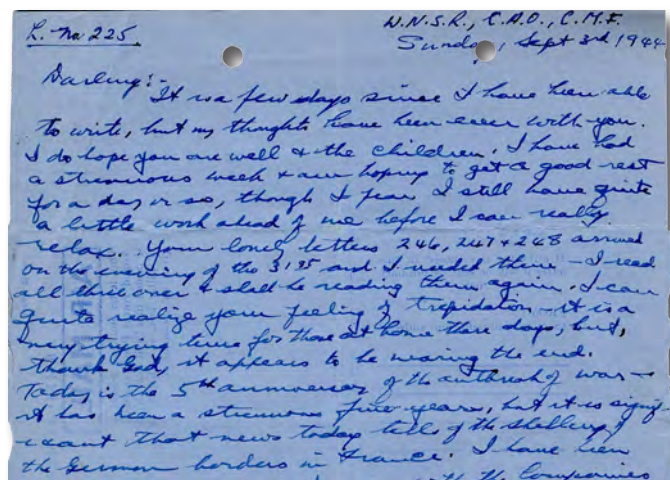 L. No 225.
W.N.S.R., C.A.O., C.M.F.
Sunday, Sept 3rd 1944
Darling:-
It is a few days since I have been able
to write, but my thoughts have been ever with you.
I do hope you are well & the children. I have had
a strenuous week & am hoping to get a good rest
for a day or so, though I fear I still have quite
a little work ahead of me before I can really
relax. Your lovely letters 246, 247 & 248 arrived
on the evening of the 31st and I needed them - I read
all three over & shall be reading them again. I can
quite realize your feeling of trepidation - it is a
very trying time for those at home these days, but,
thank God, it appears to be nearing the end.
Today is the 5th anniversary of the outbreak of war -
it has been a strenuous five years, but it is signif
icant that news today tells of the shelling of
the German borders in France. I have been
with the Companies